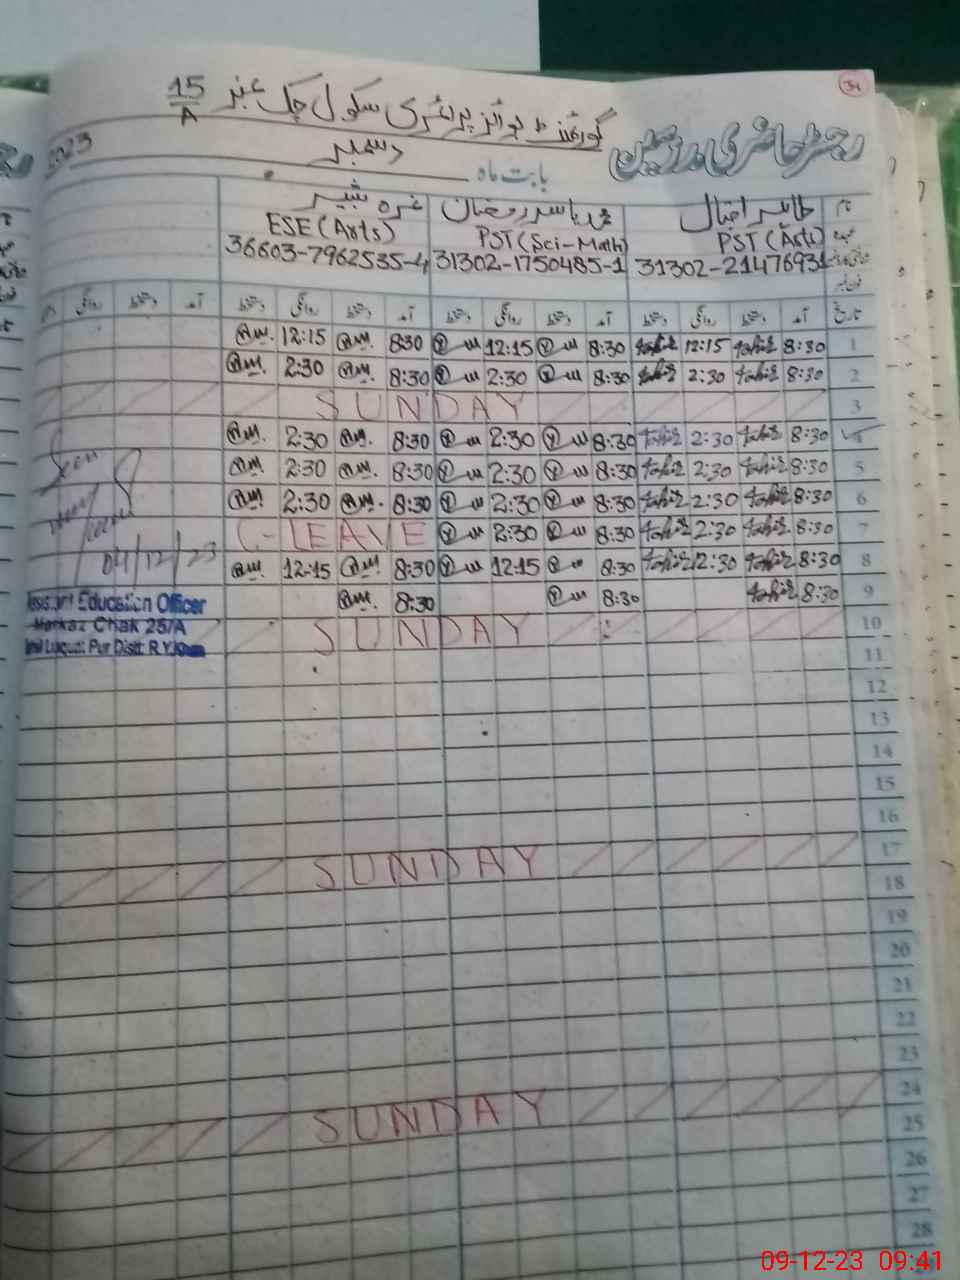 34
گورنمنٹ بوائز پرائمری سکول چک نمبر 15/A
رجسٹر حاضری مدرسین
بابت ماہ دسمبر 2023
نام طاہر اقبال محمد یاسر رمضان نمرہ بشیر
عہدہ PST (Arts) PST (Sci-Math) ESE (Arts)
31302-2147693 31302-1750485-1 36603-7962535-4
تاریخ آمد دستخط روانگی دستخط آمد دستخط روانگی دستخط آمد دستخط روانگی دستخط آمد دستخط روانگی
1 8:30 tahir 12:15 tahir 8:30 12:15 8:30 12:15
2 8:30 tahir 2:30 tahir 8:30 2:30 8:30 2:30
3 SUNDAY
4 8:30 tahir 2:30 tahir 8:30 2:30 8:30 2:30
5 8:30 tahir 2:30 tahir 8:30 2:30 8:30 2:30
6 8:30 tahir 2:30 tahir 8:30 2:30 8:30 2:30
7 8:30 tahir 2:30 tahir 8:30 2:30 C-LEAVE
8 8:30 tahir 12:30 tahir 8:30 12:15 8:30 12:15
9 8:30 tahir 8:30 8:30
10 SUNDAY
11
12
13
14
15
16
17 SUNDAY
18
19
20
21
22
23
24 SUNDAY
25
26
27
28
Seen
04/12/23
Assistant Education Officer
Markaz Chak 25/A
Liaquat Pur Distt: R.Y.Khan
09-12-23 09:41